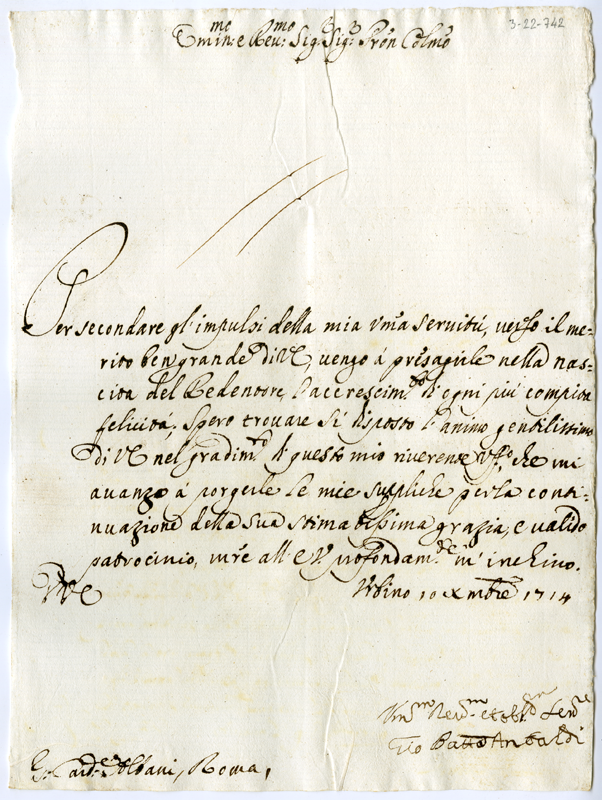 3-22-742
Emin:mo e Reu:mo Sig.r Sig.r Prōn Colmo
Per secondare gl'impulsi della mia vma seruitú, verso il me=
rito ben grande di VE, vengo á presagirle nella nas=
cita del Redentore, l'accrescim.to di ogni piú compita
felicitá; Spero trouare sí disposto l'animo gentilissimo
di VE nel gradim.to di questo mio riuerente Uff.o, che mi
auanzo á porgerle le mie suppliche per la conti=
nuazione della sua stimatissima grazia, e ualido
patrocinio, mr̄e all' E V profondam.te m' inchino.
VE Vrbino 10 Xmbre 1714
Vm.mo Reu.mo et obl.mo Ser.re
Gio Batto Antaldi
Card.e Albani, Roma,